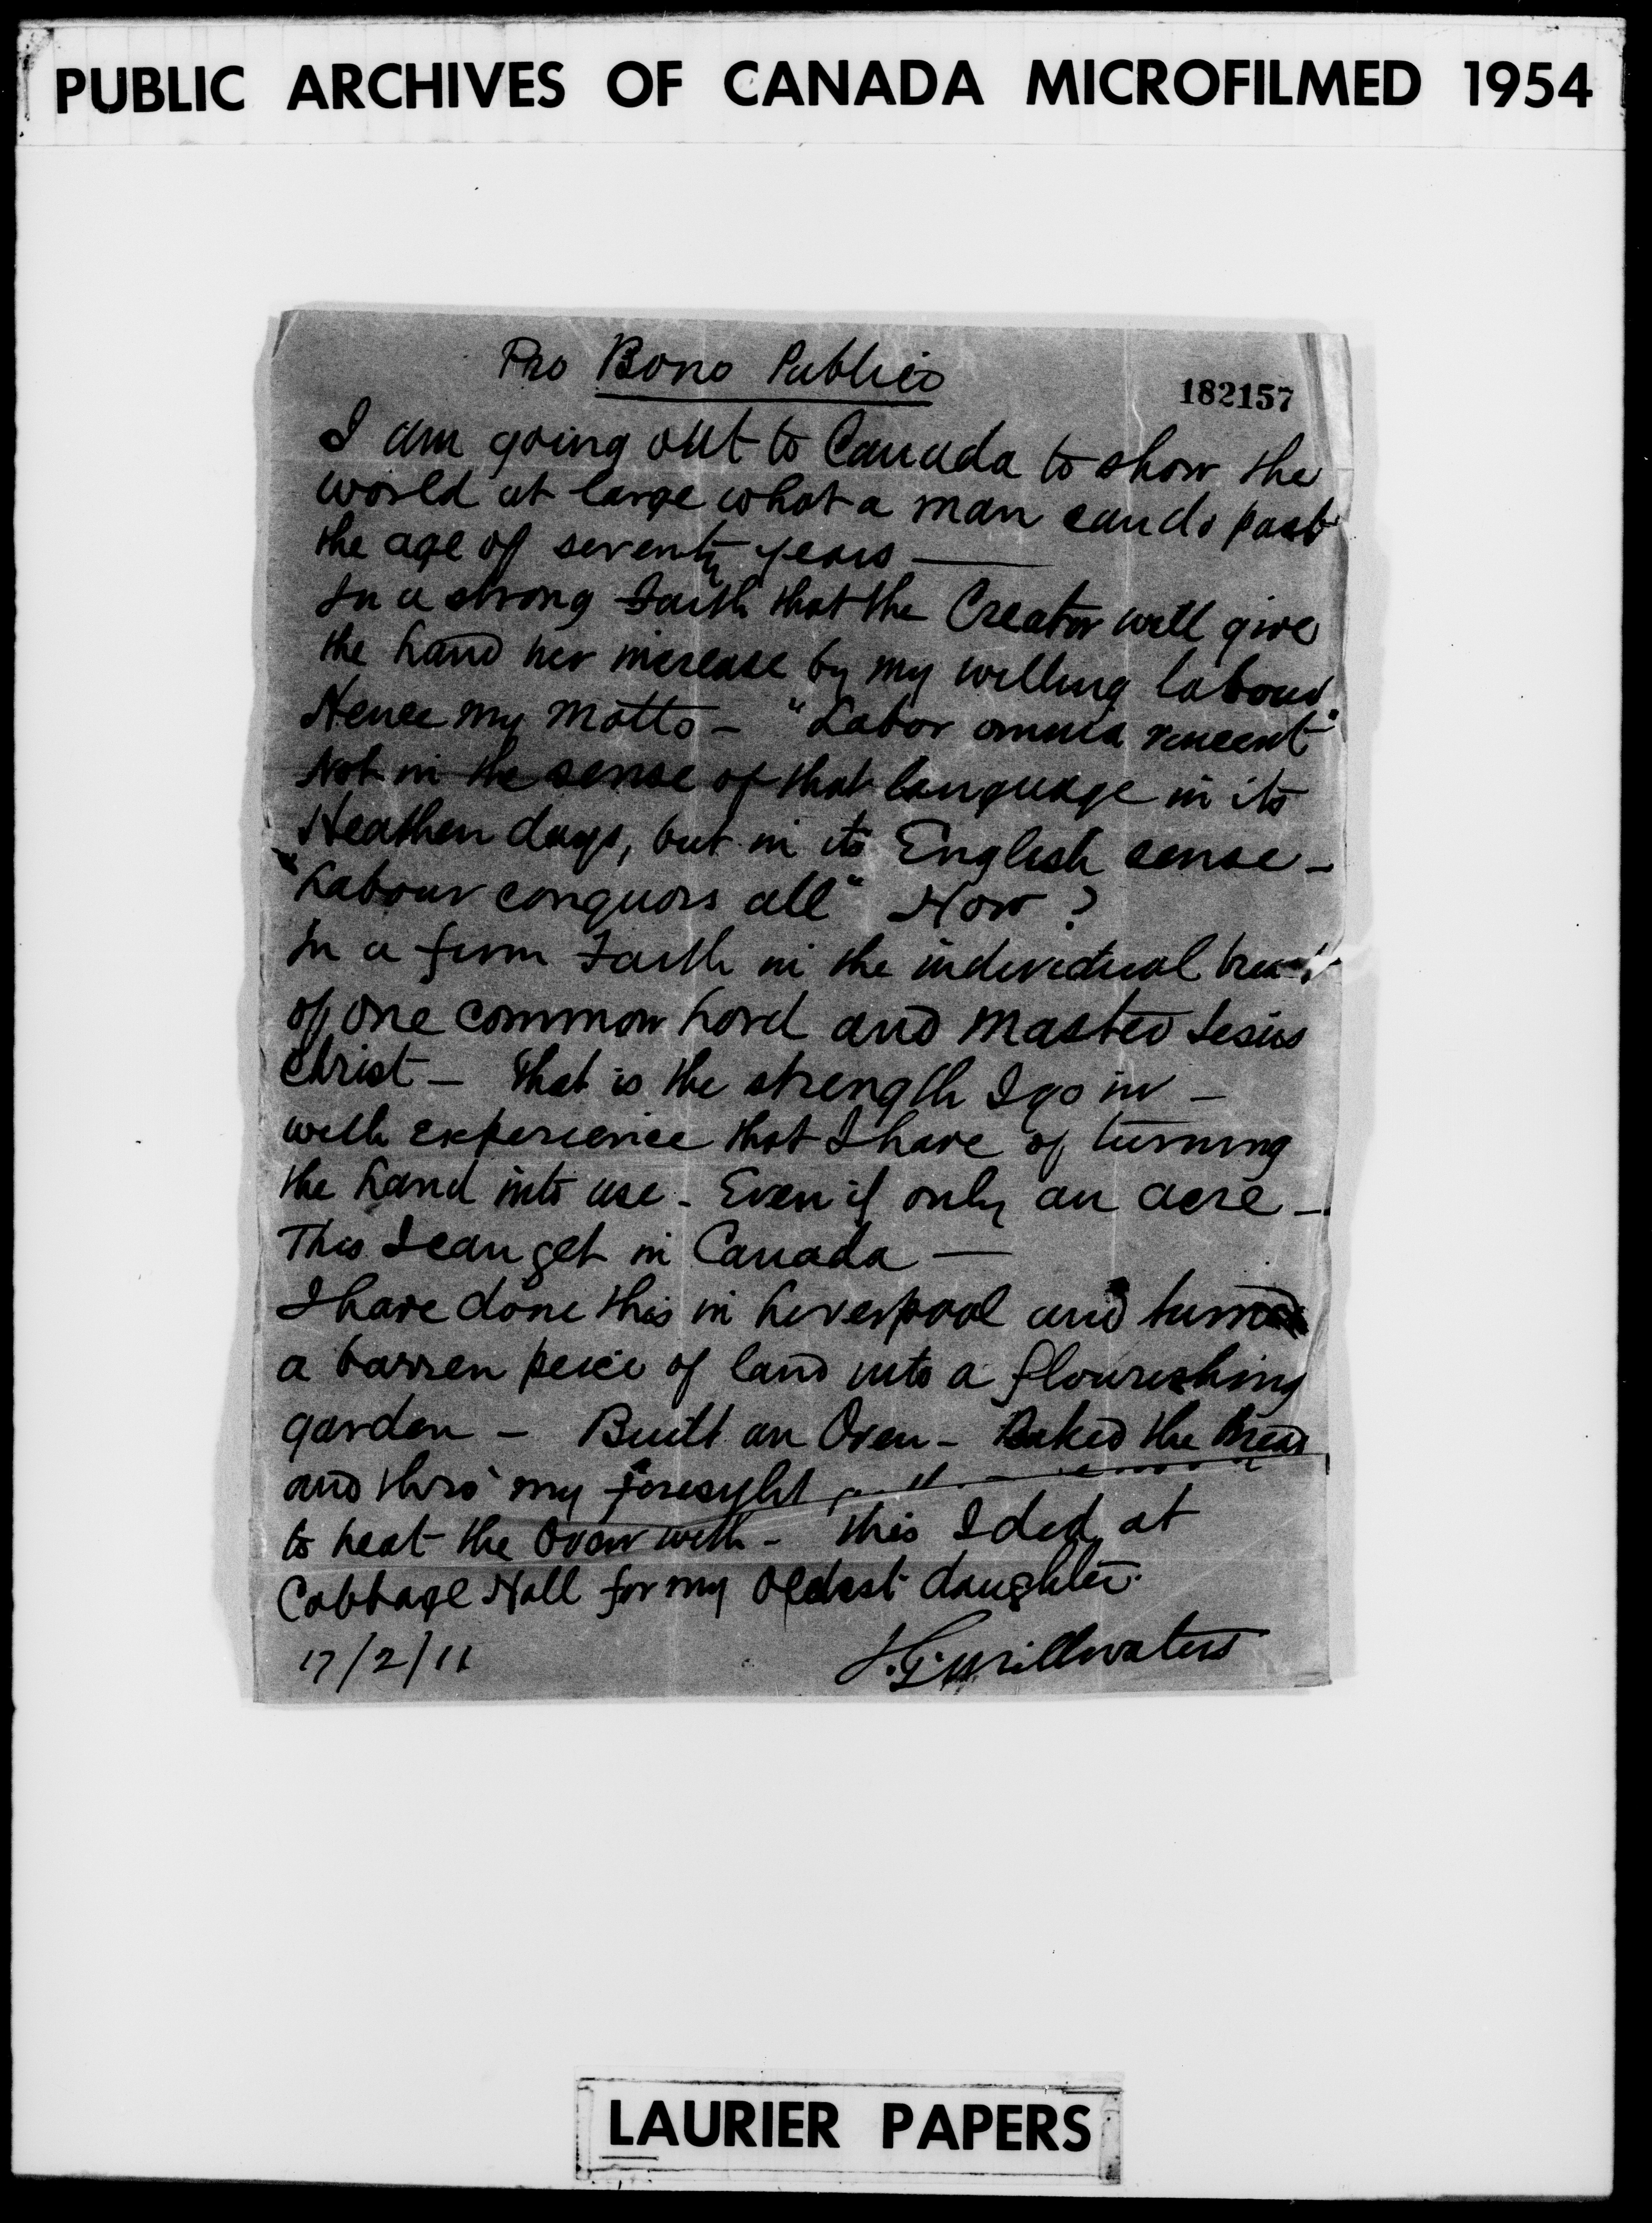 PUBLIC ARCHIVES OF CANADA MICROFILMED 1954
Pro Bono Publico
182157
I am going out to Canada to show the
world at large what a man can do past
the age of seventy years —
In a strong Faith that the Creator will give
the Land her increase by my willing labour.
Hence my Motto - "Labor omnia vincent"
Not in the sense of that language in its
Heathen days, but in its English sense -
"Labour conquors all" How ?
In a firm Faith in the individual trust
of one common Lord and Master Jesus
Christ - That is the strength I go in -
with experience that I have of turning
the Land into use - Even if only an acre -
This I can get in Canada —
I have done this in Liverpool and turned
a barren peice of land into a flourishing
garden - Built an Oven - Baked the Bread
and thro' my Foresight
to heat the Oven with - this I did at
Cabbage Hall for my Oldest daughter.
17/2/11
H.G. Millwaters
LAURIER PAPERS